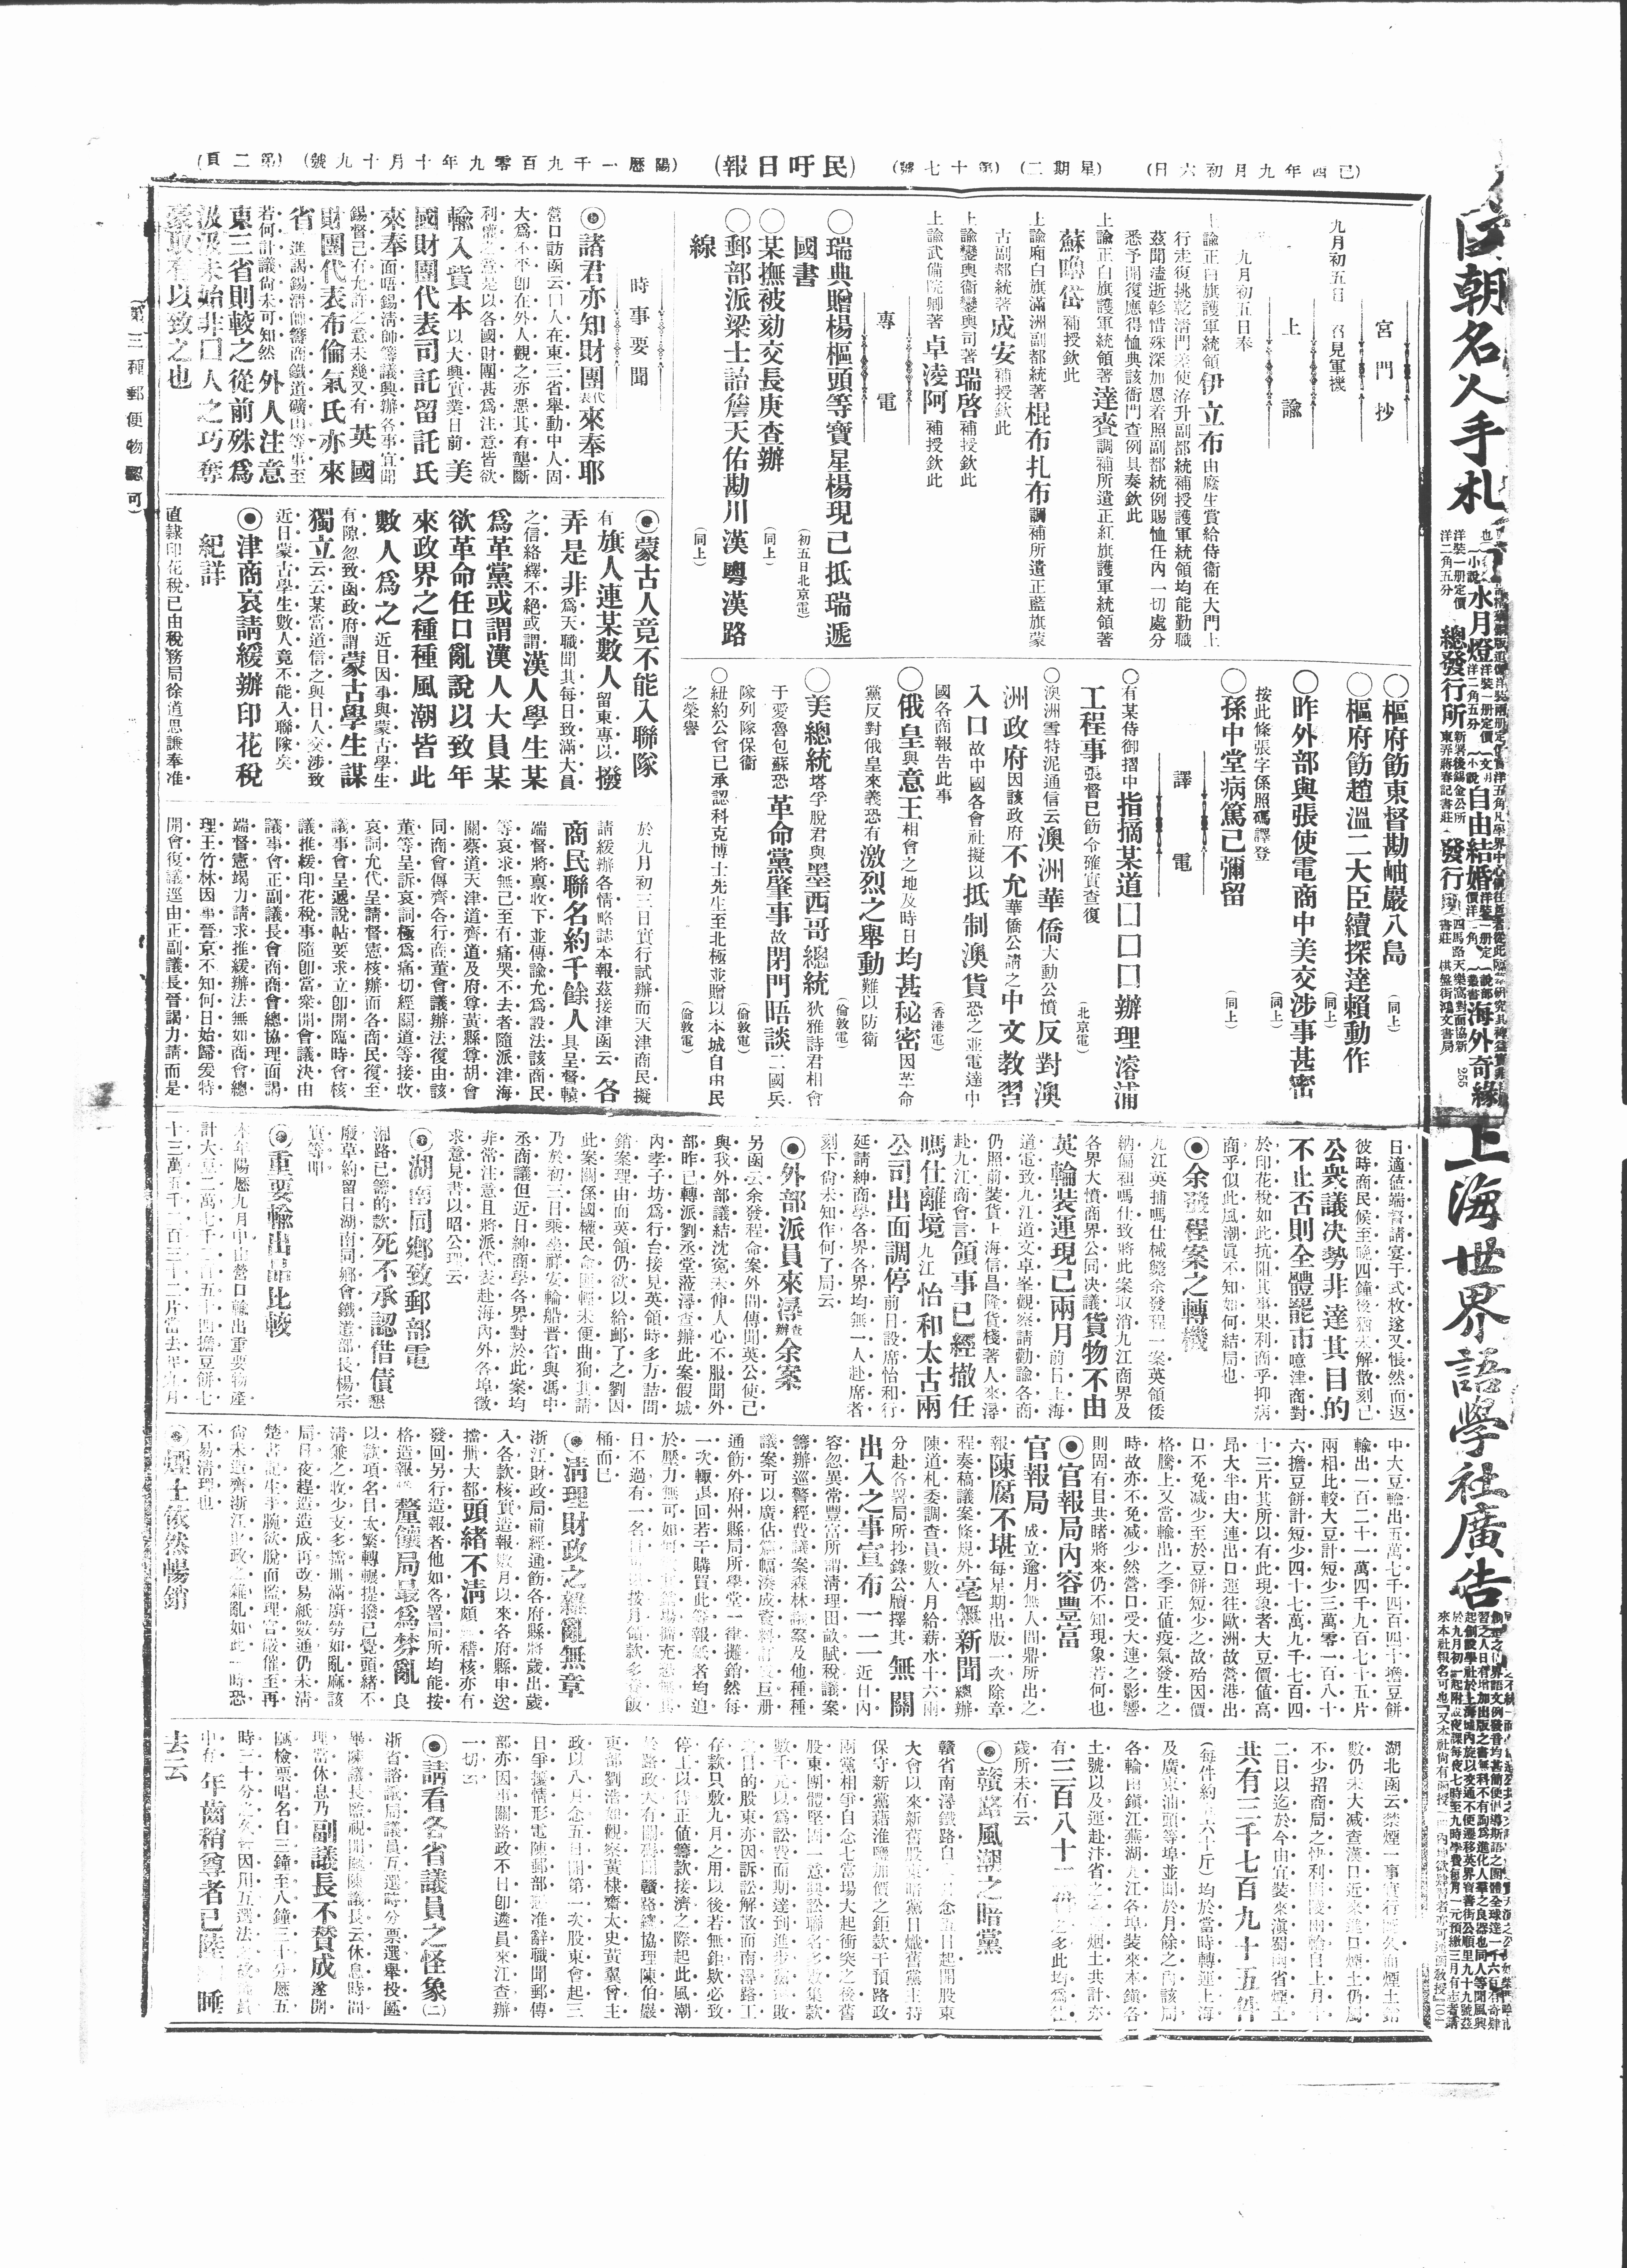 己酉年九月初六日 (星期二) (第十七號) (民吁日報) (陽曆一千九百零九年十月十九號) (第二頁)
(第三種郵便物認可)
宮門抄
九月初五日 召見軍機
上諭
九月初五日奉
上諭正白旗護軍統領伊立布由廢生賞給侍衛在大門上
行走復挑乾清門差使洊升副都統補授護軍統領均能勤職
茲聞溘逝軫惜殊深加恩着照副都統例賜恤任內一切處分
悉予開復應得恤典該衙門查例具奏欽此
上諭正白旗護軍統領著達賚調補所遺正紅旗護軍統領著
蘇嚕岱補授欽此
上諭廂白旗滿洲副都統著棍布扎布調補所遺正藍旗蒙
古副都統著成安補授欽此
上諭鑾輿衛鑾輿司著瑞啓補授欽此
上諭武備院卿著卓凌阿補授欽此
專電
〇瑞典贈楊樞頭等寶星楊現已抵瑞遞
國書 (初五日北京電)
〇某撫被劾交長庚查辦 (同上)
〇郵部派梁士詒詹天佑勘川漢粵漢路
線 (同上)
〇樞府飭東督勘岫嚴八島 (同上)
〇樞府飭趙溫二大臣續探達賴動作 (同上)
〇昨外部與張使電商中美交涉事甚密 (同上)
按此條張字係照碼譯登
〇孫中堂病篤已彌留 (同上)
譯電
〇有某侍御摺中指摘某道口口口辦理濬浦
工程事張督已飭令確實查復 (北京電)
〇澳洲雪特泥通信云澳洲華僑大動公憤反對澳
洲政府因該政府不允華僑公請之中文教習
入口故中國各會社擬以抵制澳貨恐之並電達中
國各商報告此事 (香港電)
〇俄皇與意王相會之地及時日均甚秘密因革命
黨反對俄皇來義恐有激烈之舉動難以防衛 (倫敦電)
〇美總統塔孚脫君與墨西哥總統狄雅詩君相會
于愛魯包蘇恐革命黨肇事故閉門晤談二國兵
隊列隊保衛 (倫敦電)
〇紐約公會已承認科克博士先生至北極並贈以本城自由民
之榮譽 (倫敦電)
時事要聞
◉諸君亦知財團代表來奉耶
營口訪函云口人在東三省舉動中人固
大爲不平卽在外人觀之亦惡其有壟斷
利權之意是以各國財團甚爲注意皆欲
輸入資本以大興實業日前美
國財團代表司託留託氏
來奉面晤錫淸帥籌議興辦各事宜聞
錫督已有允許之意未幾又有英國
財團代表布倫氣氏亦來
省進謁錫淸帥籌商鐵道礦山等事至
若何計議尙未可知然外人注意
東三省則較之從前殊爲
汲汲未始非口人之巧奪
豪取有以致之也
◉蒙古人竟不能入聯隊
有旗人連某數人留東專以撥
弄是非爲天職聞其每日致滿大員
之信絡繹不絕或謂漢人學生某
爲革黨或謂漢人大員某
欲革命任口亂說以致年
來政界之種種風潮皆此
數人爲之近日因事與蒙古學生
有隙忽致函政府謂蒙古學生謀
獨立云云某當道信之與日人交涉致
近日蒙古學生數人竟不能入聯隊矣
◉津商哀請緩辦印花稅
紀詳
直隸印花稅已由稅務局徐道思謙奉准
於九月初三日實行試辦而天津商民擬
請緩辦各情略誌本報茲接津函云各
商民聯名約千餘人具呈督轅
端督將稟收下並傳諭允爲設法該商民
等哀求無已至有痛哭不去者隨派津海
關蔡道天津道齊道及府尊黃縣尊胡會
同商會傳齊各行商董會議辦法復由該
董等呈訴哀詞極爲痛切經關道等接收
哀詞允代呈請督憲核辦而各商民復至
議事會呈遞說帖要求立卽開臨時會核
議推緩印花稅事隨卽當衆開會議決由
議事會正副議長會商商會總協理面謁
端督憲竭力請求推緩辦法無如商會總
理王竹林因事晉京不知何日始歸爰特
開會復議逕由正副議長晉謁力請而是
日適値端督請宴于式枚遂又悵然而返
彼時商民候至晚四鐘後猶未解散刻已
公衆議決勢非達其目的
不止否則全體罷市噫津商對
於印花稅如此抗阻其事果利商乎抑病
商乎似此風潮眞不知如何結局也
◉余發程案之轉機
九江英捕嗎仕械斃余發程一案英領倭
納偏袒嗎仕致將此案取消九江商界及
各界大憤商界公同決議貨物不由
英輪裝運現已兩月前日上海
道電致九江道文卓峯觀察請勸諭各商
仍照前裝貨上海信昌隆貨棧著人來潯
赴九江商會言領事已經撤任
嗎仕離境九江怡和太古兩
公司出面調停前日設席怡和行
延請紳商學各界各界均無一人赴席者
刻下尙未知作何了局云
◉外部派員來潯查辦余案
另函云余發程命案外間傳聞英公使已
與我外部議結沈冤未伸人心不服聞外
部昨已轉派劉丞堂蒞潯查辦此案假城
內孝子坊爲行台接見英領時多方詰問
銷案理由而英領仍欲以給卹了之劉因
此案關係國權民命匪輕未便曲徇其請
乃於初三日乘坐祥安輪船晉省與馮中
丞商議但近日紳商學各界對於此案均
非常注意且將派代表赴海內外各埠徵
求意見書以昭公理云
◉湖南同鄉致郵部電
湘路已籌的款死不承認借債懇
廢草約留日湖南同鄉會鐵道部長楊宗
實等叩
◉重要輸出品比較
本年陽曆九月中由營口輸出重要物產
計大豆二萬七千二百五十四擔豆餅七
十三萬五千二百三十二片當去年九月
中大豆輸出五萬七千四百四十擔豆餅
輸出一百二十一萬四千九百七十五片
兩相比較大豆計短少三萬零一百八十
六擔豆餅計短少四十七萬九千七百四
十三片其所以有此現象者大豆價値高
昂大半由大連出口運往歐洲故營港出
口不免減少至於豆餅短少之故殆因價
格騰上又當輸出之季正値疫氣發生之
時故亦不免減少然營口受大連之影響
則固有目共睹將來仍不知現象若何也
◉官報局內容豐富
官報局成立逾月無人間鼎所出之
報陳腐不堪每星期出版一次除章
程奏稿議案條規外毫無新聞總辦
陳道札委調查員數人月給薪水十六兩
分赴各署局所抄錄公牘擇其無關
出入之事宣布一二近日內
容忽異常豐富所謂淸理田畝賦稅議案
籌辦巡警經費議案森林議案及他種種
議案可以廣佔篇幅湊成資料訂成巨册
通飭外府州縣局所學堂一律攤銷然每
一次輒退回若干購買此等報紙者均迫
於壓力無可如
日不過有一名目按月領款多養飯
桶而已
◉淸理財政之雜亂無章
浙江財政局前經通飭各府縣將歲出歲
入各款核實造報數月以來各府縣申送
擋册大都頭緖不淸頗稽核亦有
發回另行造報者他如各署局所均能按
格造報釐餉局最爲棼亂良
以款項名目太繁轉輾提撥已覺頭緖不
淸兼之收少支多擋册滿廚勞如亂麻該
局日夜趕造造成再改易紙數通仍未淸
楚書記生手腕欲脫而監理官嚴催至再
尙未造齊浙江財政之雜亂如此一時恐
不易淸理也
◉煙土依然暢銷
湖北函云禁煙一事實行已久而煙土銷
數仍未大減查漢口近來進口煙土仍屬
不少招商局之快利
二日以迄於今由宜裝來滇蜀兩省煙土
共有三千七百九十五件
(每件約六十斤)均於當時轉運上海
及廣東汕頭等埠並聞於月餘之內該局
各輪由鎭江蕪湖九江各埠裝來本鎭各
土號以及運赴汴省之煙土共計亦
有二百八十二件之多此均爲往
歲所未有云
◉贛路風潮之暗黨
贛省南潯鐵路自念五日起開股東
大會以來新舊股東暗黨日熾舊黨主持
保守新黨藉淮鹽加價之鉅款干預路政
兩黨相爭自念七當場大起衝突之後舊
股東團體堅固一意與訟聯名多數集款
數千元以爲訟費而期達到進步黨
之目的股東亦因訴訟解散而南潯路工
存款只敷九月之用以後若無鉅欵必致
停工以待正値籌款接濟之際起此風潮
於路政大有關碍聞贛路總協理陳伯嚴
吏部劉浩如觀察黃棣齋太史黃翼曾主
政以八月念五日開第一次股東會起三
日爭攘情形電陳郵部並准辭職聞郵傳
部亦因事關路政不日卽遴員來江查辦
一切云
◉請看各省議員之怪象(二)
浙省諮議局議員互選時分票選舉投匭
畢陳議長監視開匭陳議長云休息時間
理當休息乃副議長不贊成遂開
匭檢票唱名自三鐘至八鐘三十分歷五
時三十分之久
中有年齒稍尊者已陸睡
去云
國朝名人手札
小說 水月燈 洋裝一册定價洋二角五分
小說 自由結婚
說部叢書 海外奇緣
總發行所 新署後錫金公所東弄蔣春記書莊
發行 四馬路天樂窩對面協新書莊 棋盤街鴻文書局
255
上海世界語學社廣告